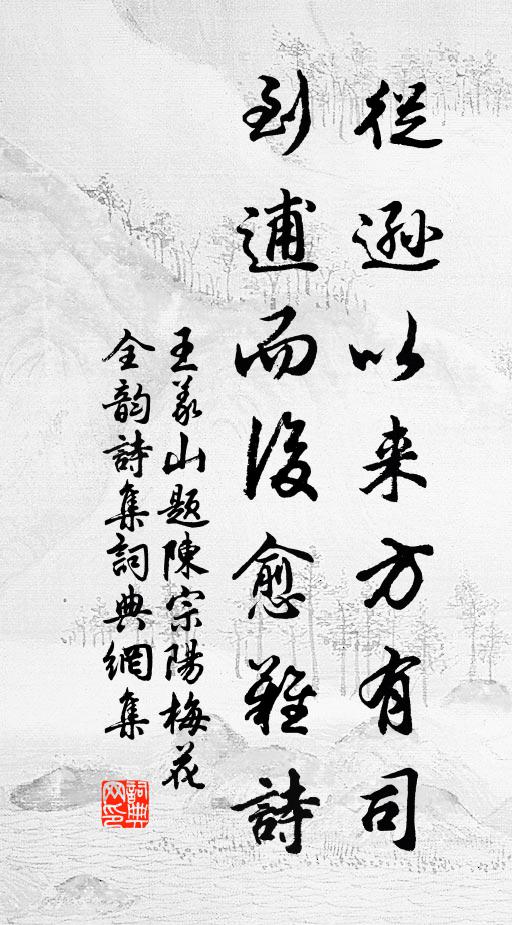 從遜以来方有司
到逋而後愈難詩
王义山题陳宗陽梅花
全韵詩集詞典網集
詞典网印